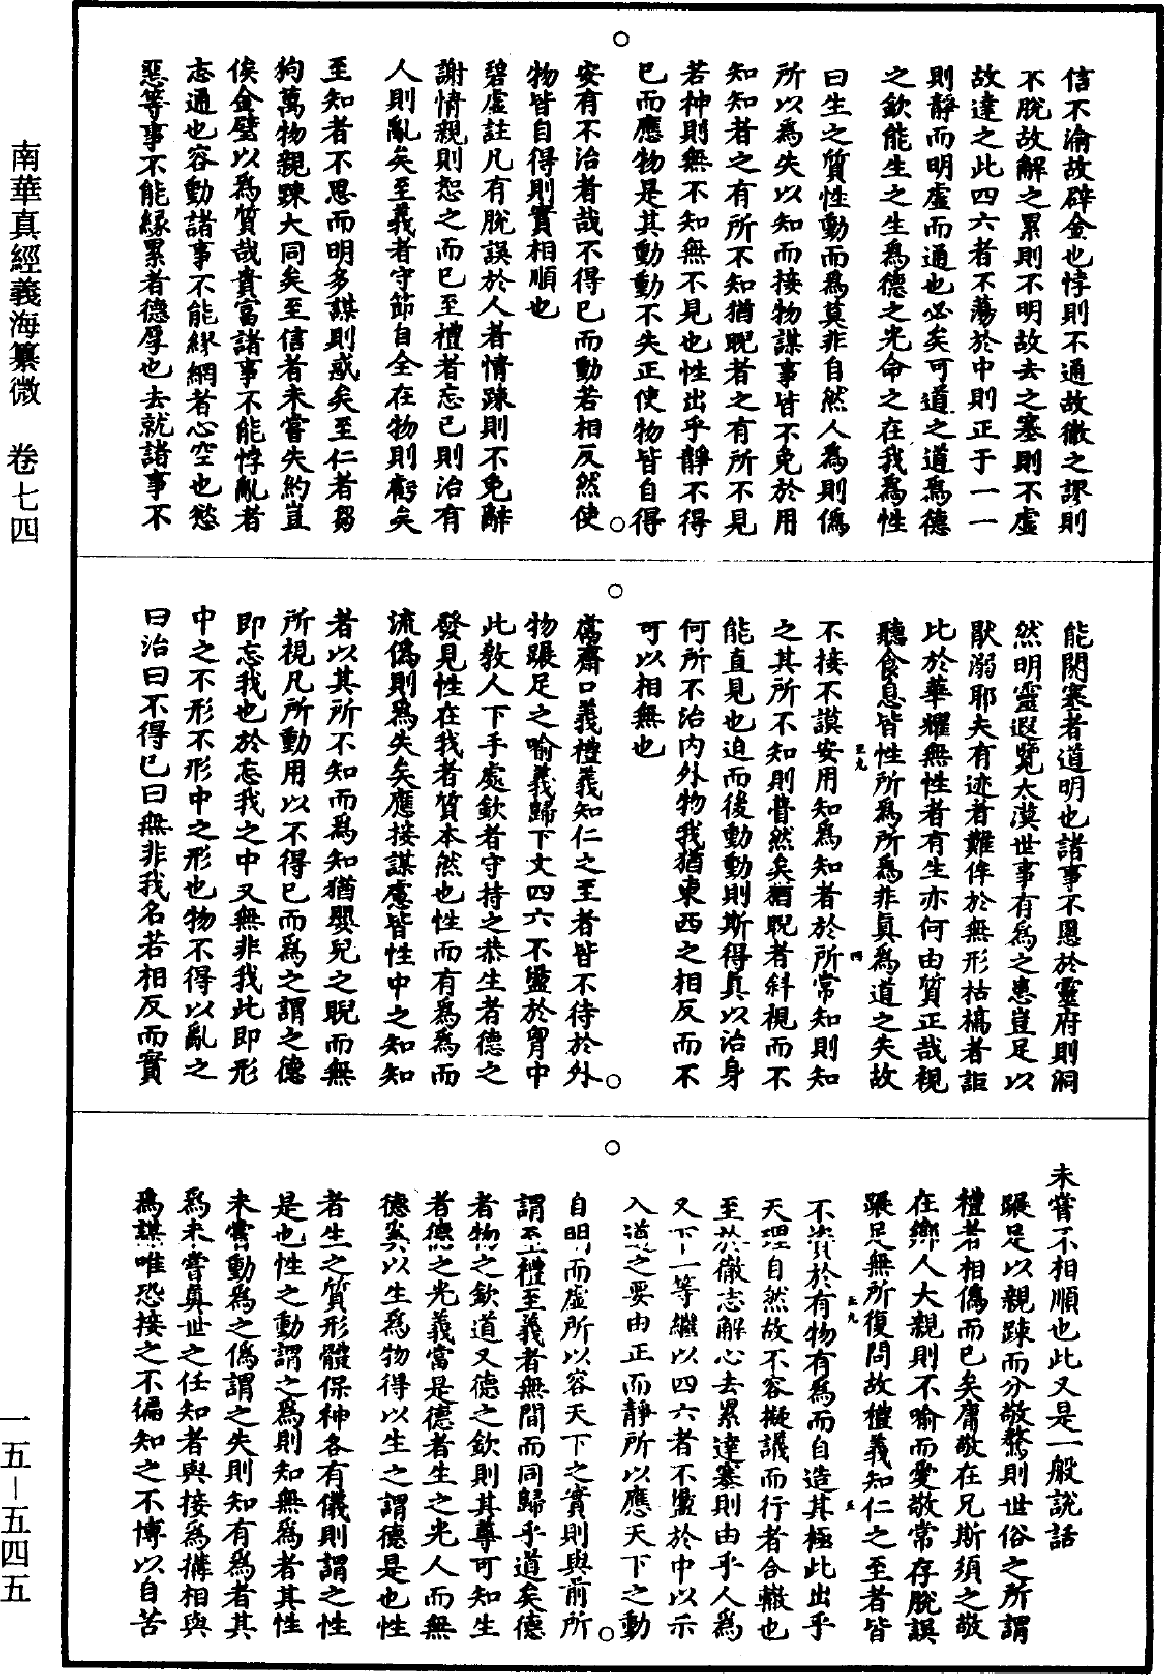 南華真經義海纂微　卷七四
一五—五四五
信不淪故辟金也悖則不通故徹之謬則
不脫故解之累則不明故去之塞則不虛
故達之此四六者不蕩於中則正于一一
則靜而明虛而通也必矣可道之道為德
之欽能生之生為德之光命之在我為性
曰生之質性動而為莫非自然人為則偽
所以為失以知而接物謀事皆不免於用
知知者之有所不知猶睨者之有所不見
若神則無不知無不見也性出乎靜不得
已而應物是其動動不失正使物皆自得
安有不治者哉不得已而動若相反然使
物皆自得則實相順也
碧虛註凡有脫誤於人者情踈則不免辭
謝情親則恕之而已至禮者忘己則治有
人則亂矣至義者守節自全在物則虧矣
至知者不思而明多謀則惑矣至仁者芻
狗萬物親踈大同矣至信者未嘗失約豈
俟金璧以為質哉貴富諸事不能悖亂者
志通也容動諸事不能繆綢者心空也慾
惡等事不能緣累者德厚也去就諸事不
能閉塞者道明也諸事不慁於靈府則洞
然明靈遐覽大漠世事有為之患豈足以
猒溺耶夫有迹者難侔於無形枯槁者詎
比於華耀無性者有生亦何由質正哉視
聽食息皆性所為所為非真為道之失故
不接不謨安用知為知者於所常知則知
之其所不知則瞢然矣猶睨者斜視而不
能直見也迫而後動動則斯得真以治身
何所不治內外物我猶東西之相反而不
可以相無也
鬳齋口義禮義知仁之至者皆不待於外
物蹍足之喻義歸下文四六不盪於胷中
此教人下手處欽者守持之恭生者德之
發見性在我者質本然也性而有為為而
流偽則為失矣應接謀慮皆性中之知知
者以其所不知而為知猶嬰兒之睨而無
所視凡所動用以不得已而為之謂之德
即忘我也於忘我之中又無非我此即形
中之不形不形中之形也物不得以亂之
曰治曰不得已曰無非我名若相反而實
未嘗不相順也此又是一般說話
蹍足以親踈而分敬驁則世俗之所謂
禮者相偽而已矣庸敬在兄斯須之敬
在鄉人大親則不喻而愛敬常存脫誤
蹍足無所復問故禮義知仁之至者皆
不資於有物有為而自造其極此出乎
天理自然故不容擬議而行者合轍也
至於徹志解心去累達塞則由乎人為
又下一等繼以四六者不盪於中以示
入道之要由正而靜所以應天下之動
自明而虛所以容天下之實則與前所
謂至禮至義者無間而同歸乎道矣德
者物之欽道又德之欽則其尊可知生
者德之光義當是德者生之光人而無
德奚以生為物得以生之謂德是也性
者生之質形體保神各有儀則謂之性
是也性之動謂之為則知無為者其性
未嘗動為之偽謂之失則知有為者其
為未嘗真世之任知者與接為搆相與
為謀唯恐接之不徧知之不博以自苦